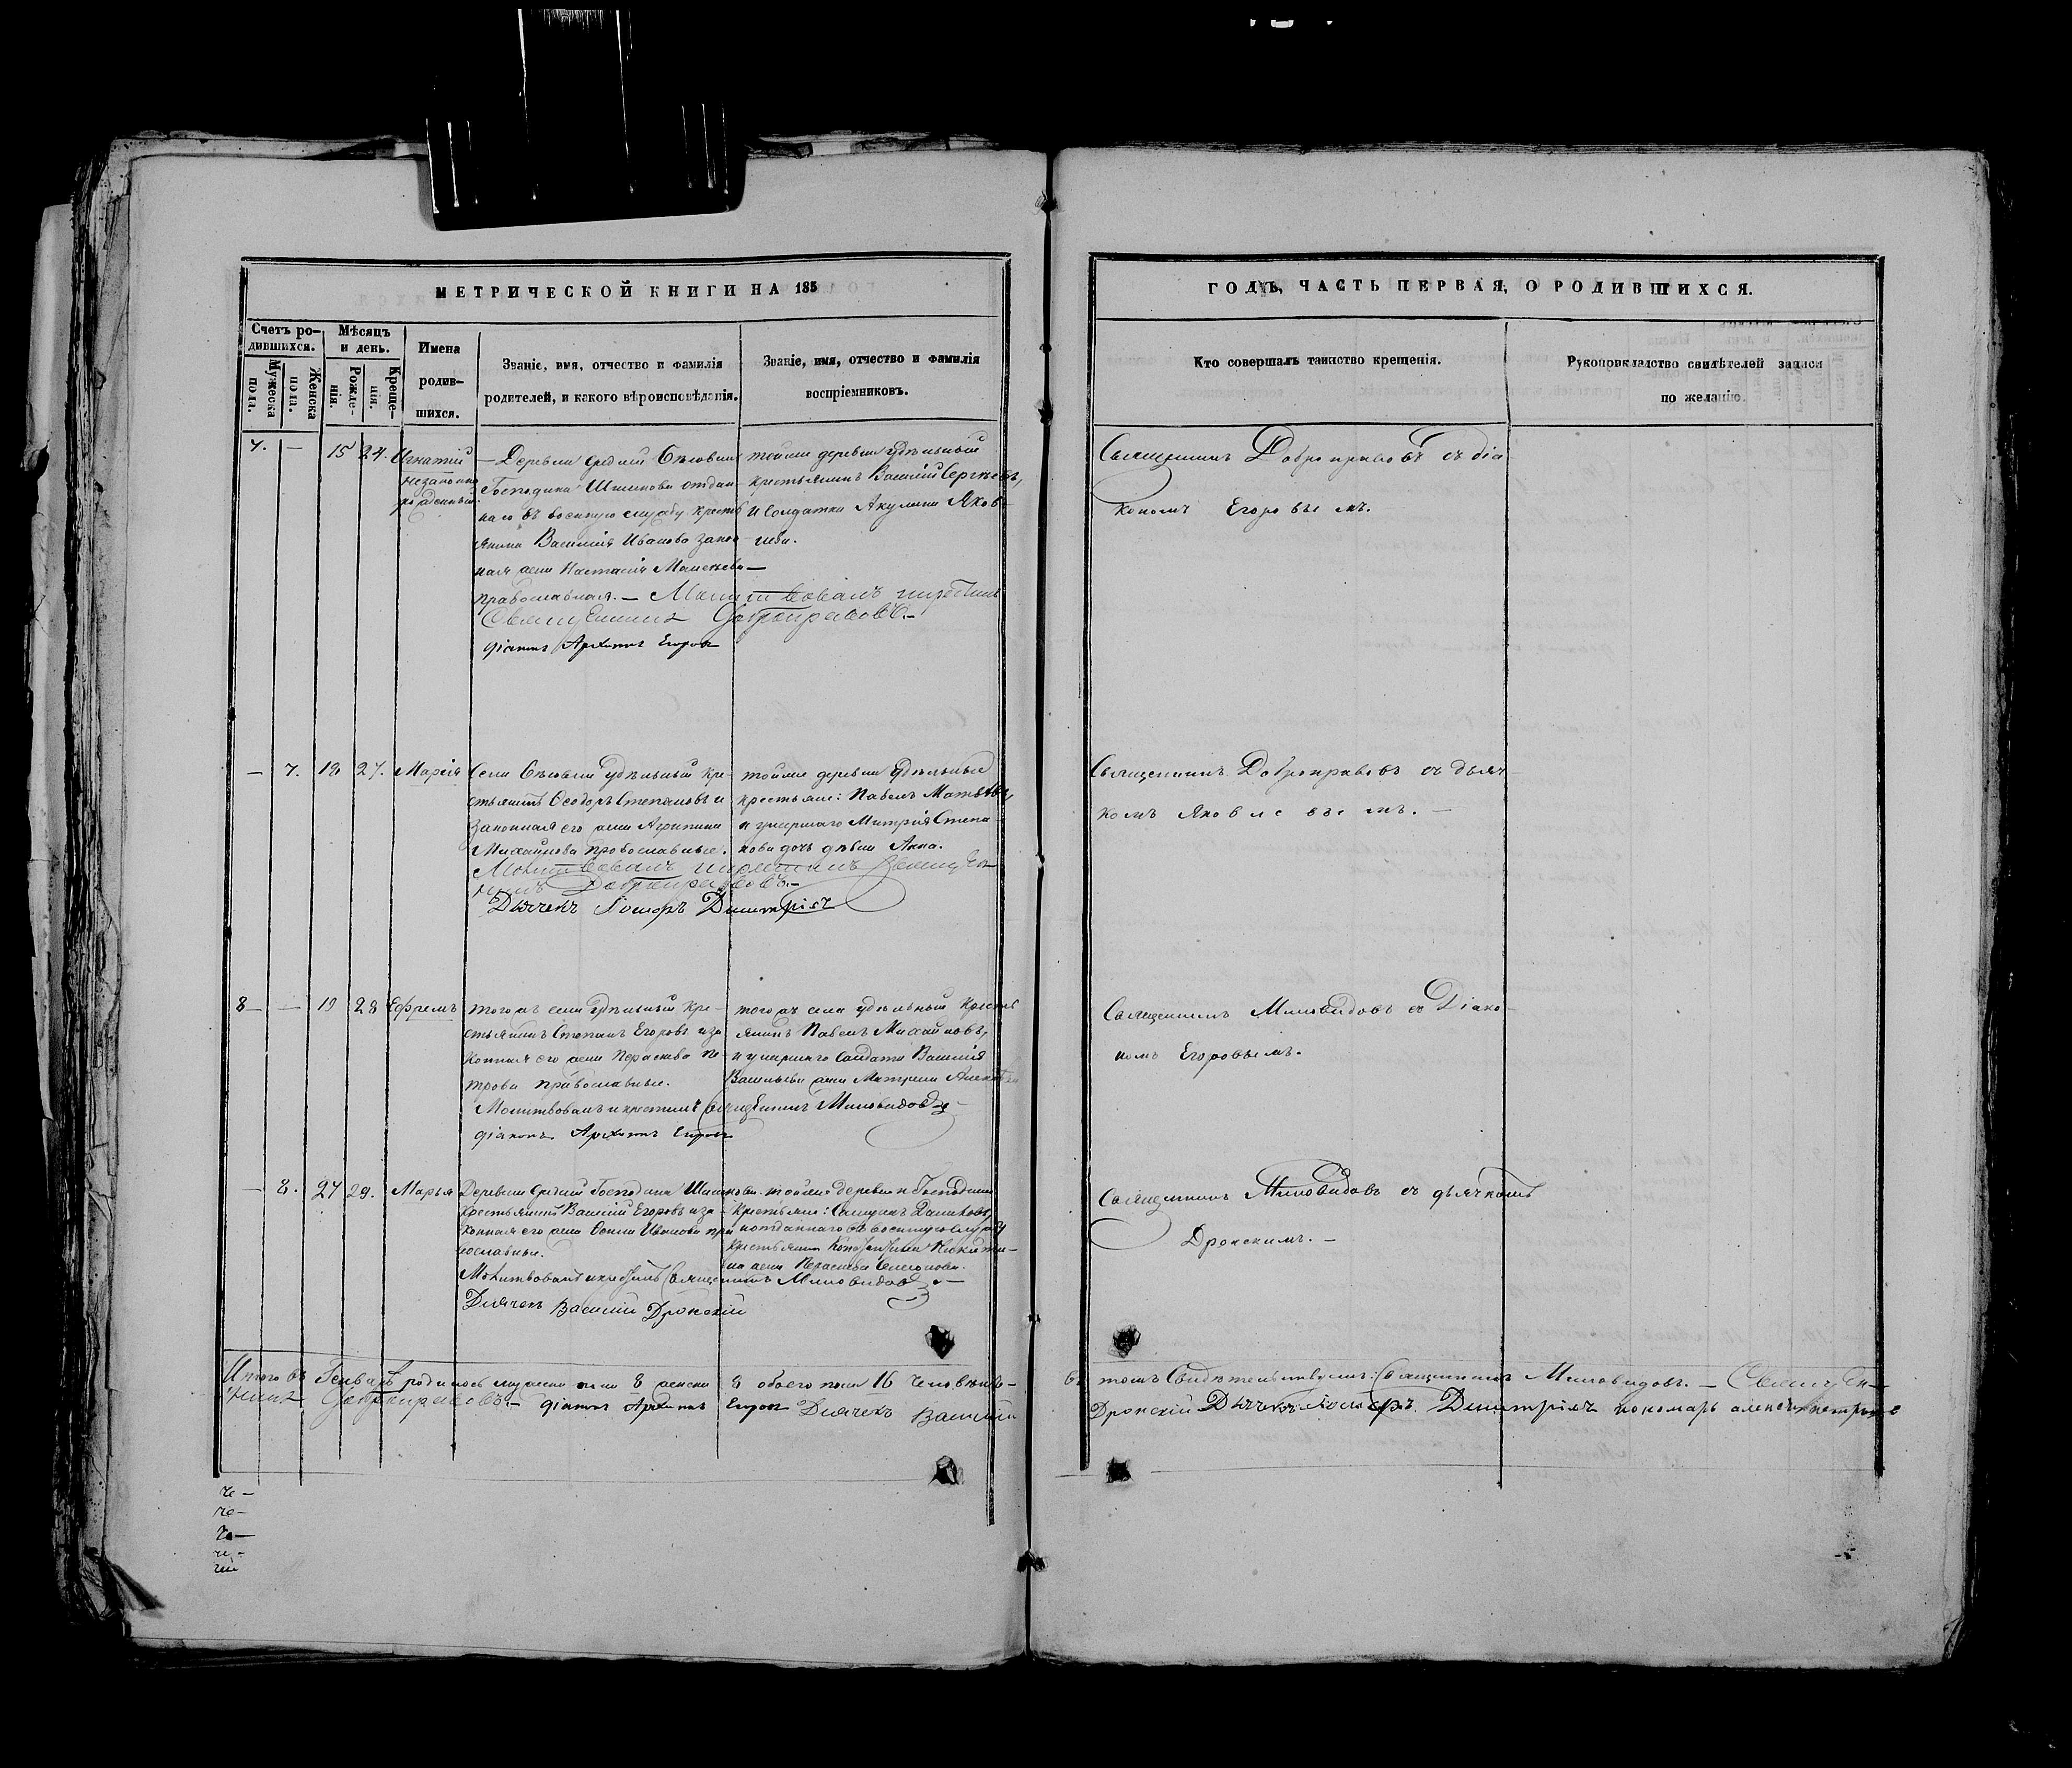 МЕТРИЧЕСКОЙ КНИГИ НА 185
Счетъ ро-
дившихся.
Мужеска
пола.
Женска
пола.
Мѣсяцъ
и день.
Рожде-
нія.
Креще-
нія.
Имена
родив-
шихся.
Званіе, имя, отчество и фамилія
родителей, и какого вѣроисповѣданія.
Званіе, имя, отчество и фамилія
воспріемниковъ.
7. — 15 24. Игнатій
незаконно
рожденный.
— Деревни Средней
Господина Шишкова отдан-
наго въ военную службу кресть
янина Василія Иванова закон
ная жена Настасія
православная. — Молитвовалъ и крестилъ
Священникъ Добронравовъ. —
діаконъ Архипъ Егоровъ
тойже деревни удѣльный
крестьянинъ Василій Сергѣевъ,
и солдатка Акулина Яков-
лева.
— 7. 18 27. Марія
Села удѣльный кре-
стьянинъ Ѳеодоръ Степановъ и
законная его жена Агрипина
Михайлова православные.
Молитвовалъ и крестилъ Священ
никъ Добронравовъ. —
Дьячекъ Димитрія
тойже деревни удѣльные
крестьяне: Павелъ Матвѣевъ,
и умершаго Митрія Степа-
нова дочь дѣвка Анна.
8 — — 19 28 Ефремъ
тогожъ села удѣльный кре-
стьянинъ Степанъ Егоровъ и за
конная его жена Параскева Пе-
трова православные.
Молитвовалъ и крестилъ Священникъ Миловидовъ —
діаконъ Архипъ Егоровъ
тогожъ села удѣльный кресть
янинъ Павелъ Михайловъ,
и умершаго солдата Василія
Васильева жена Матрена
— 8. 27 29. Марья
Деревни Средней Господина Шишкова
крестьянинъ Василій Егоровъ и за-
конная его жена Иванова пра
вославные.
Молитвовалъ и крестилъ Священникъ Миловидовъ —
Дьячекъ Василій Дронскій
тойже деревни и Господина
крестьяне:
и отданнаго въ военную службу
крестьянина Никити-
на жена Параскева
Итого въ Генварѣ родилось мужеска пола 8 женска 8 обоего пола 16 человѣкъ —
никъ Добронравовъ. — діаконъ Архипъ Егоровъ Дьячекъ Василій
че —
че —
че —
ГОДЪ, ЧАСТЬ ПЕРВАЯ, О РОДИВШИХСЯ.
Кто совершалъ таинство крещенія.
Рукоприкладство свидѣтелей записи
по желанію.
Священникъ Добронравовъ съ діа-
кономъ Егоровымъ.
Священникъ Добронравовъ съ дьяч-
комъ Яковлевымъ. —
Священникъ Миловидовъ съ Діако-
номъ Егоровымъ.
Священникъ Миловидовъ съ дьячкомъ
Дронскимъ. —
въ томъ Свидѣтельствуемъ: Священникъ Миловидовъ. — Священ-
Дронскій Дьячекъ Димитрія пономарь алексѣй